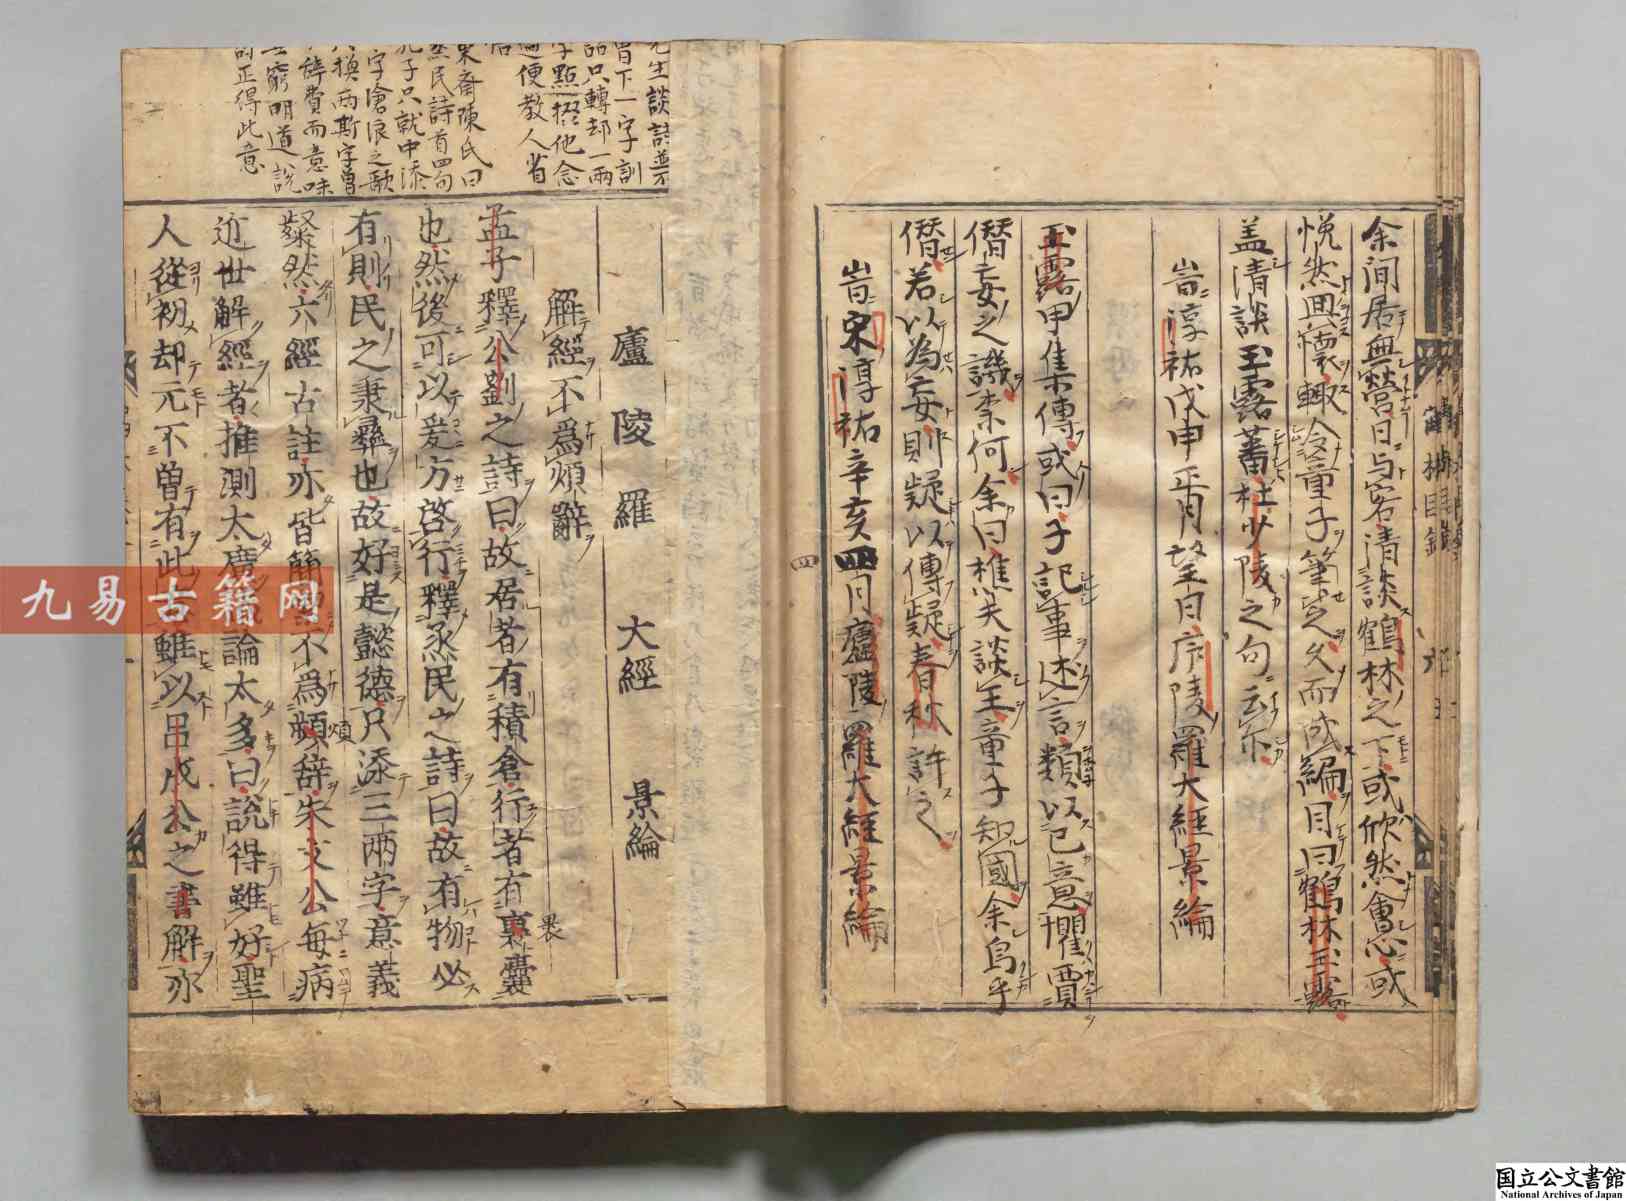 余間居無營日与客清談鶴林之下或欣然會心或
慨然興懷輒令童子筆之久而成編因曰鶴林玉露
盖清談玉露蕃杜少陵之句云尓
峕淳祐戊申正月望日序陵羅大經景綸
玉露甲集傳或曰子記事述言類以己意懼賈
僭妄之譏柰何余曰樵夫談王童子知國余烏乎
僭若以為妄則疑以傳疑春秋許之
峕宋淳祐辛亥四月廬陵羅大經景綸
廬陵羅 大經 景綸
解經不爲煩辭
孟子釋公劉之詩曰故居者有積倉行者有裹囊
裹
也然後可以爰方啓行釋烝民之詩曰故有物必
有則民之秉彝也故好是懿德只添三兩字意義
粲然六經古註亦皆簡不爲頻辞朱文公每病
煩
近世解經者推測太廣論太多曰說得雖好聖
人從初却元不曽有此雖以呂成公之書解亦
先生談詩並不
曾下一字訓
詁只轉却一兩
字點掇他念
過便教人省
悟
東斎陳氏曰
烝民詩首四句
孔子只就中添
字滄浪之歌
換兩斯字曾
辞費而意味
窮明道說
詩正得此意
九易古籍网
国立公文書館
National Archives of Japan